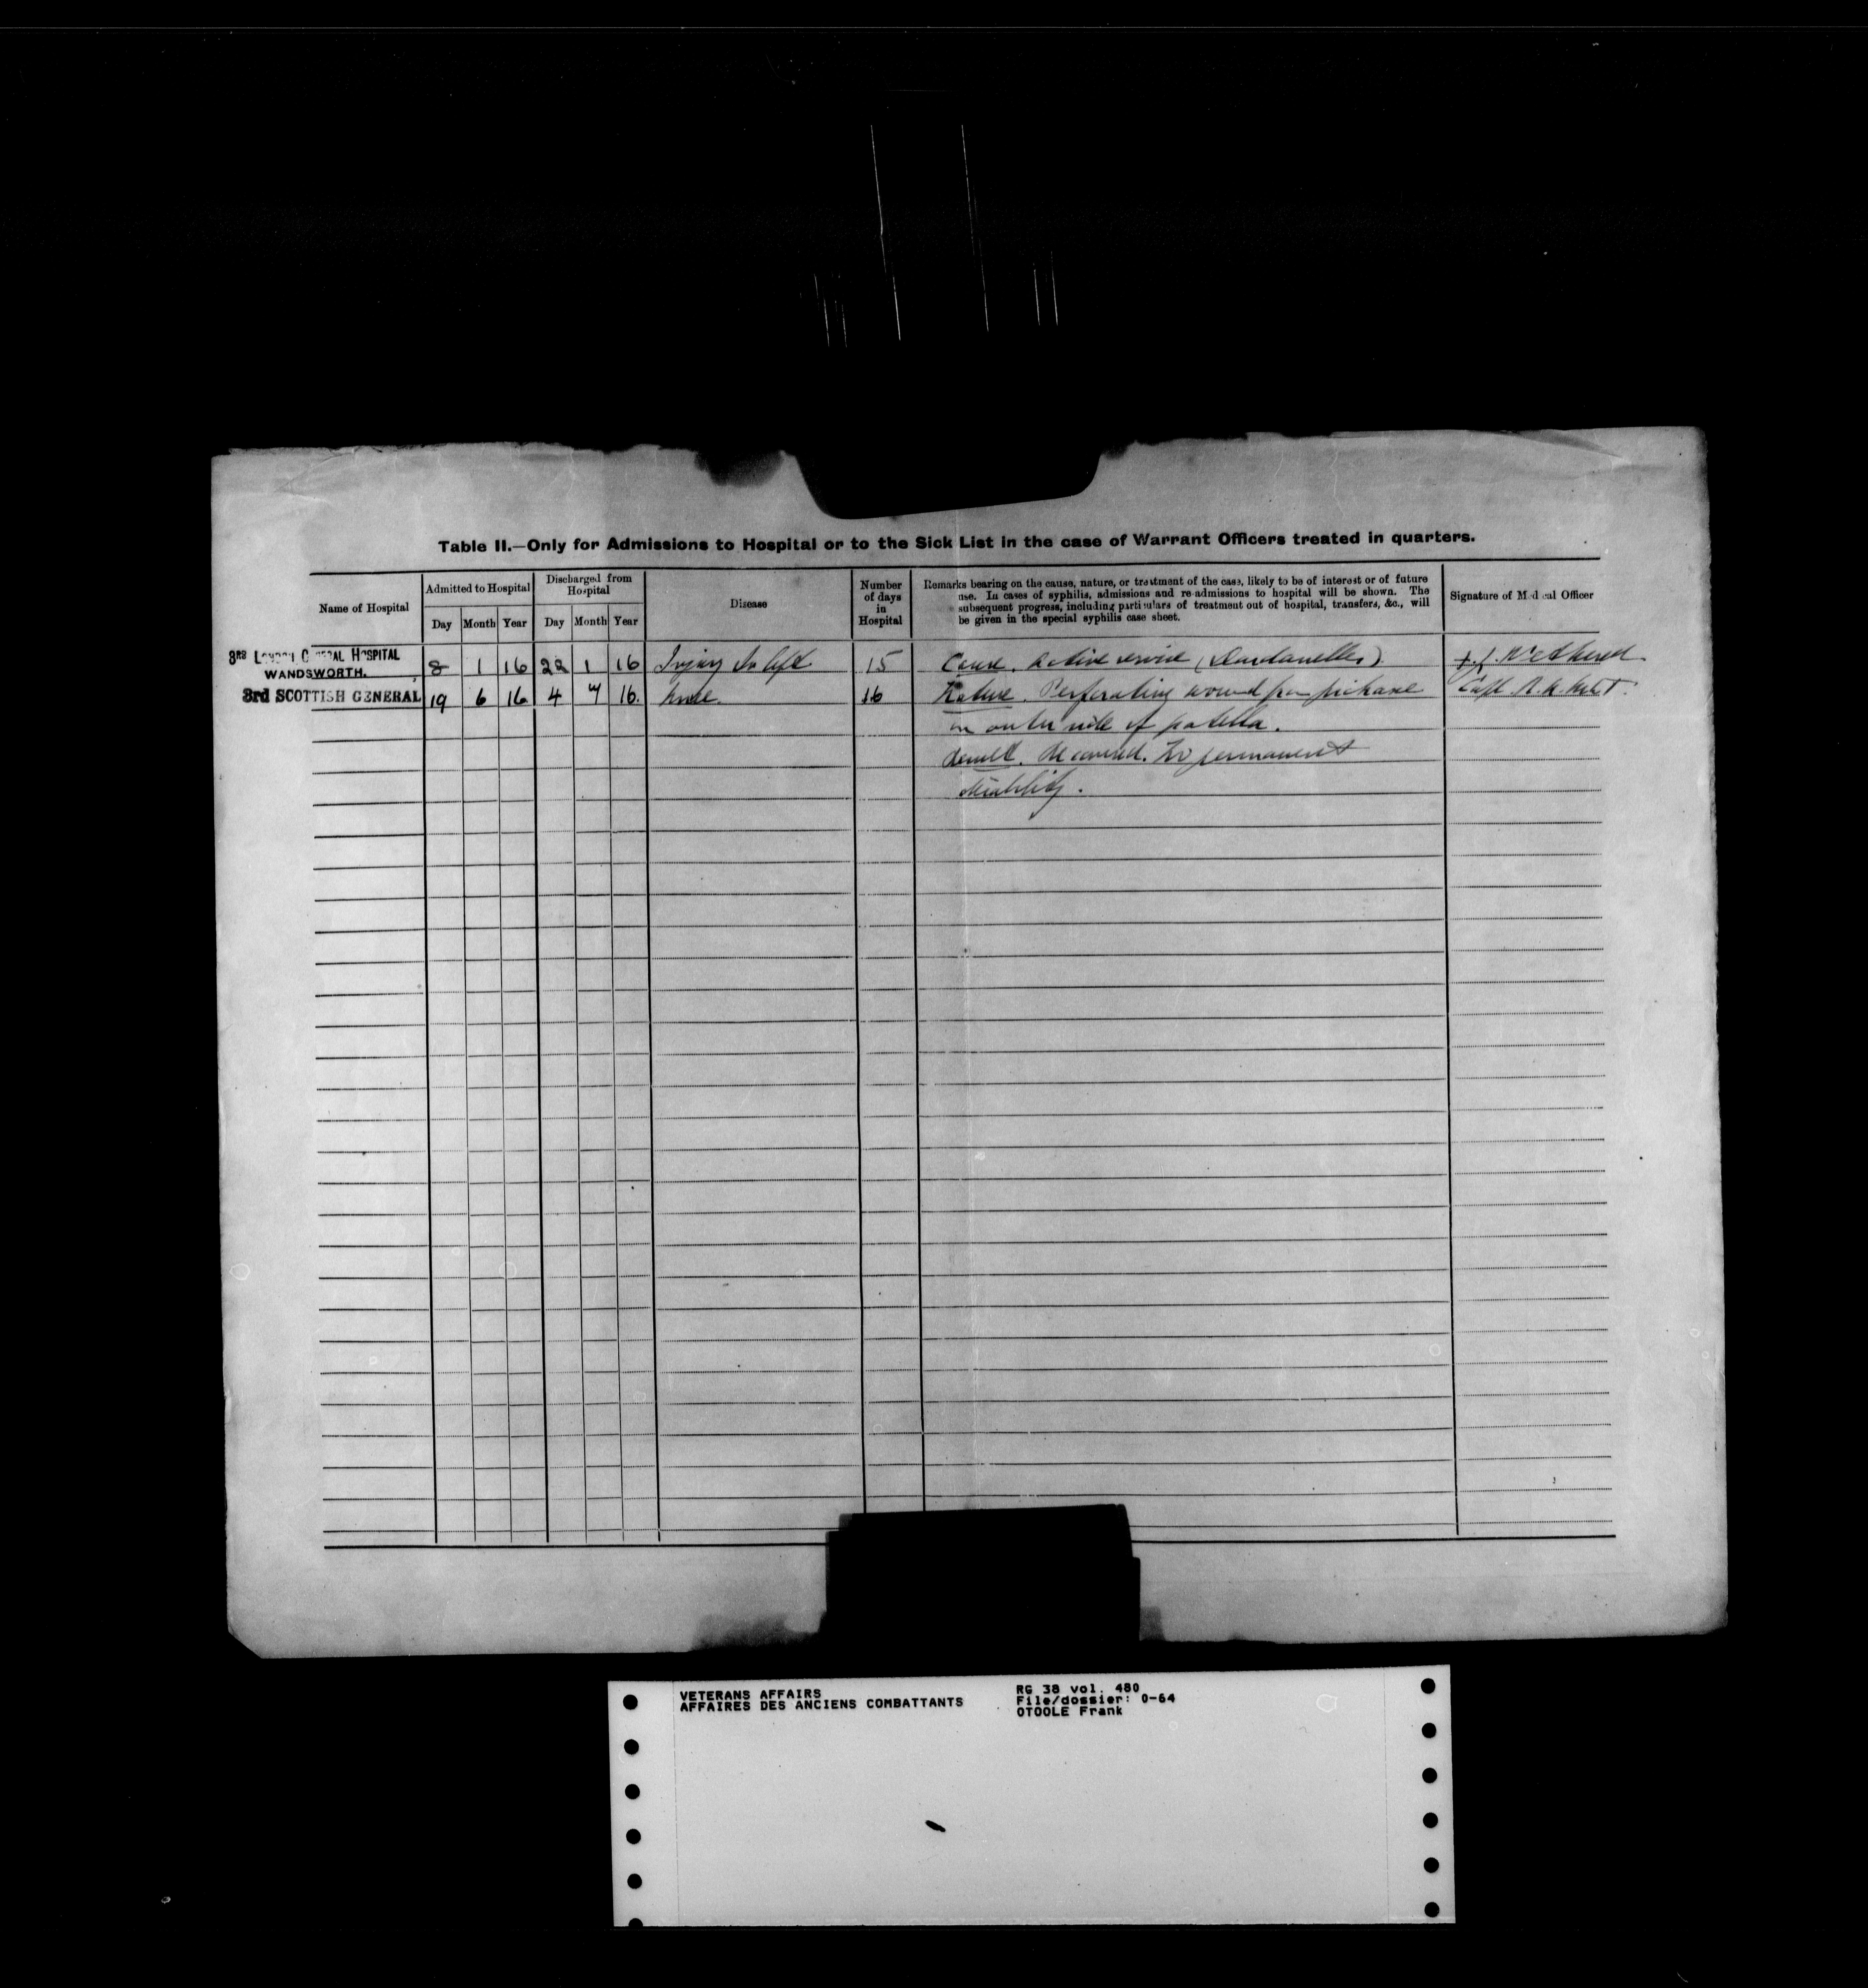 Table II.—Only for Admissions to Hospital or to the Sick List in the case of Warrant Officers treated in quarters.
Name of Hospital
Admitted to Hospital
Day Month Year
Discharged from
Hospital
Day Month Year
Disease
Number
of days
in
Hospital
Remarks bearing on the cause, nature, or treatment of the case, likely to be of interest or of future
use. In cases of syphilis, admissions and re-admissions to hospital will be shown. The
subsequent progress, including particulars of treatment out of hospital, transfers, &c., will
be given in the special syphilis case sheet.
Signature of Medical Officer
3RD LONDON GENERAL HOSPITAL
WANDSWORTH.
8 1 16 22 1 16 Injury to left 15 Cause. Active service (Dardanelles)
3rd SCOTTISH GENERAL 19 6 16 4 7 16. knee. 16 Nature. Perforating wound from pickaxe Capt. R.A.M.C.T.
on outer side of patella.
Result. Recovered. No permanent
disability.
VETERANS AFFAIRS
AFFAIRES DES ANCIENS COMBATTANTS
RG 38 vol. 480
File/dossier: O-64
OTOOLE Frank